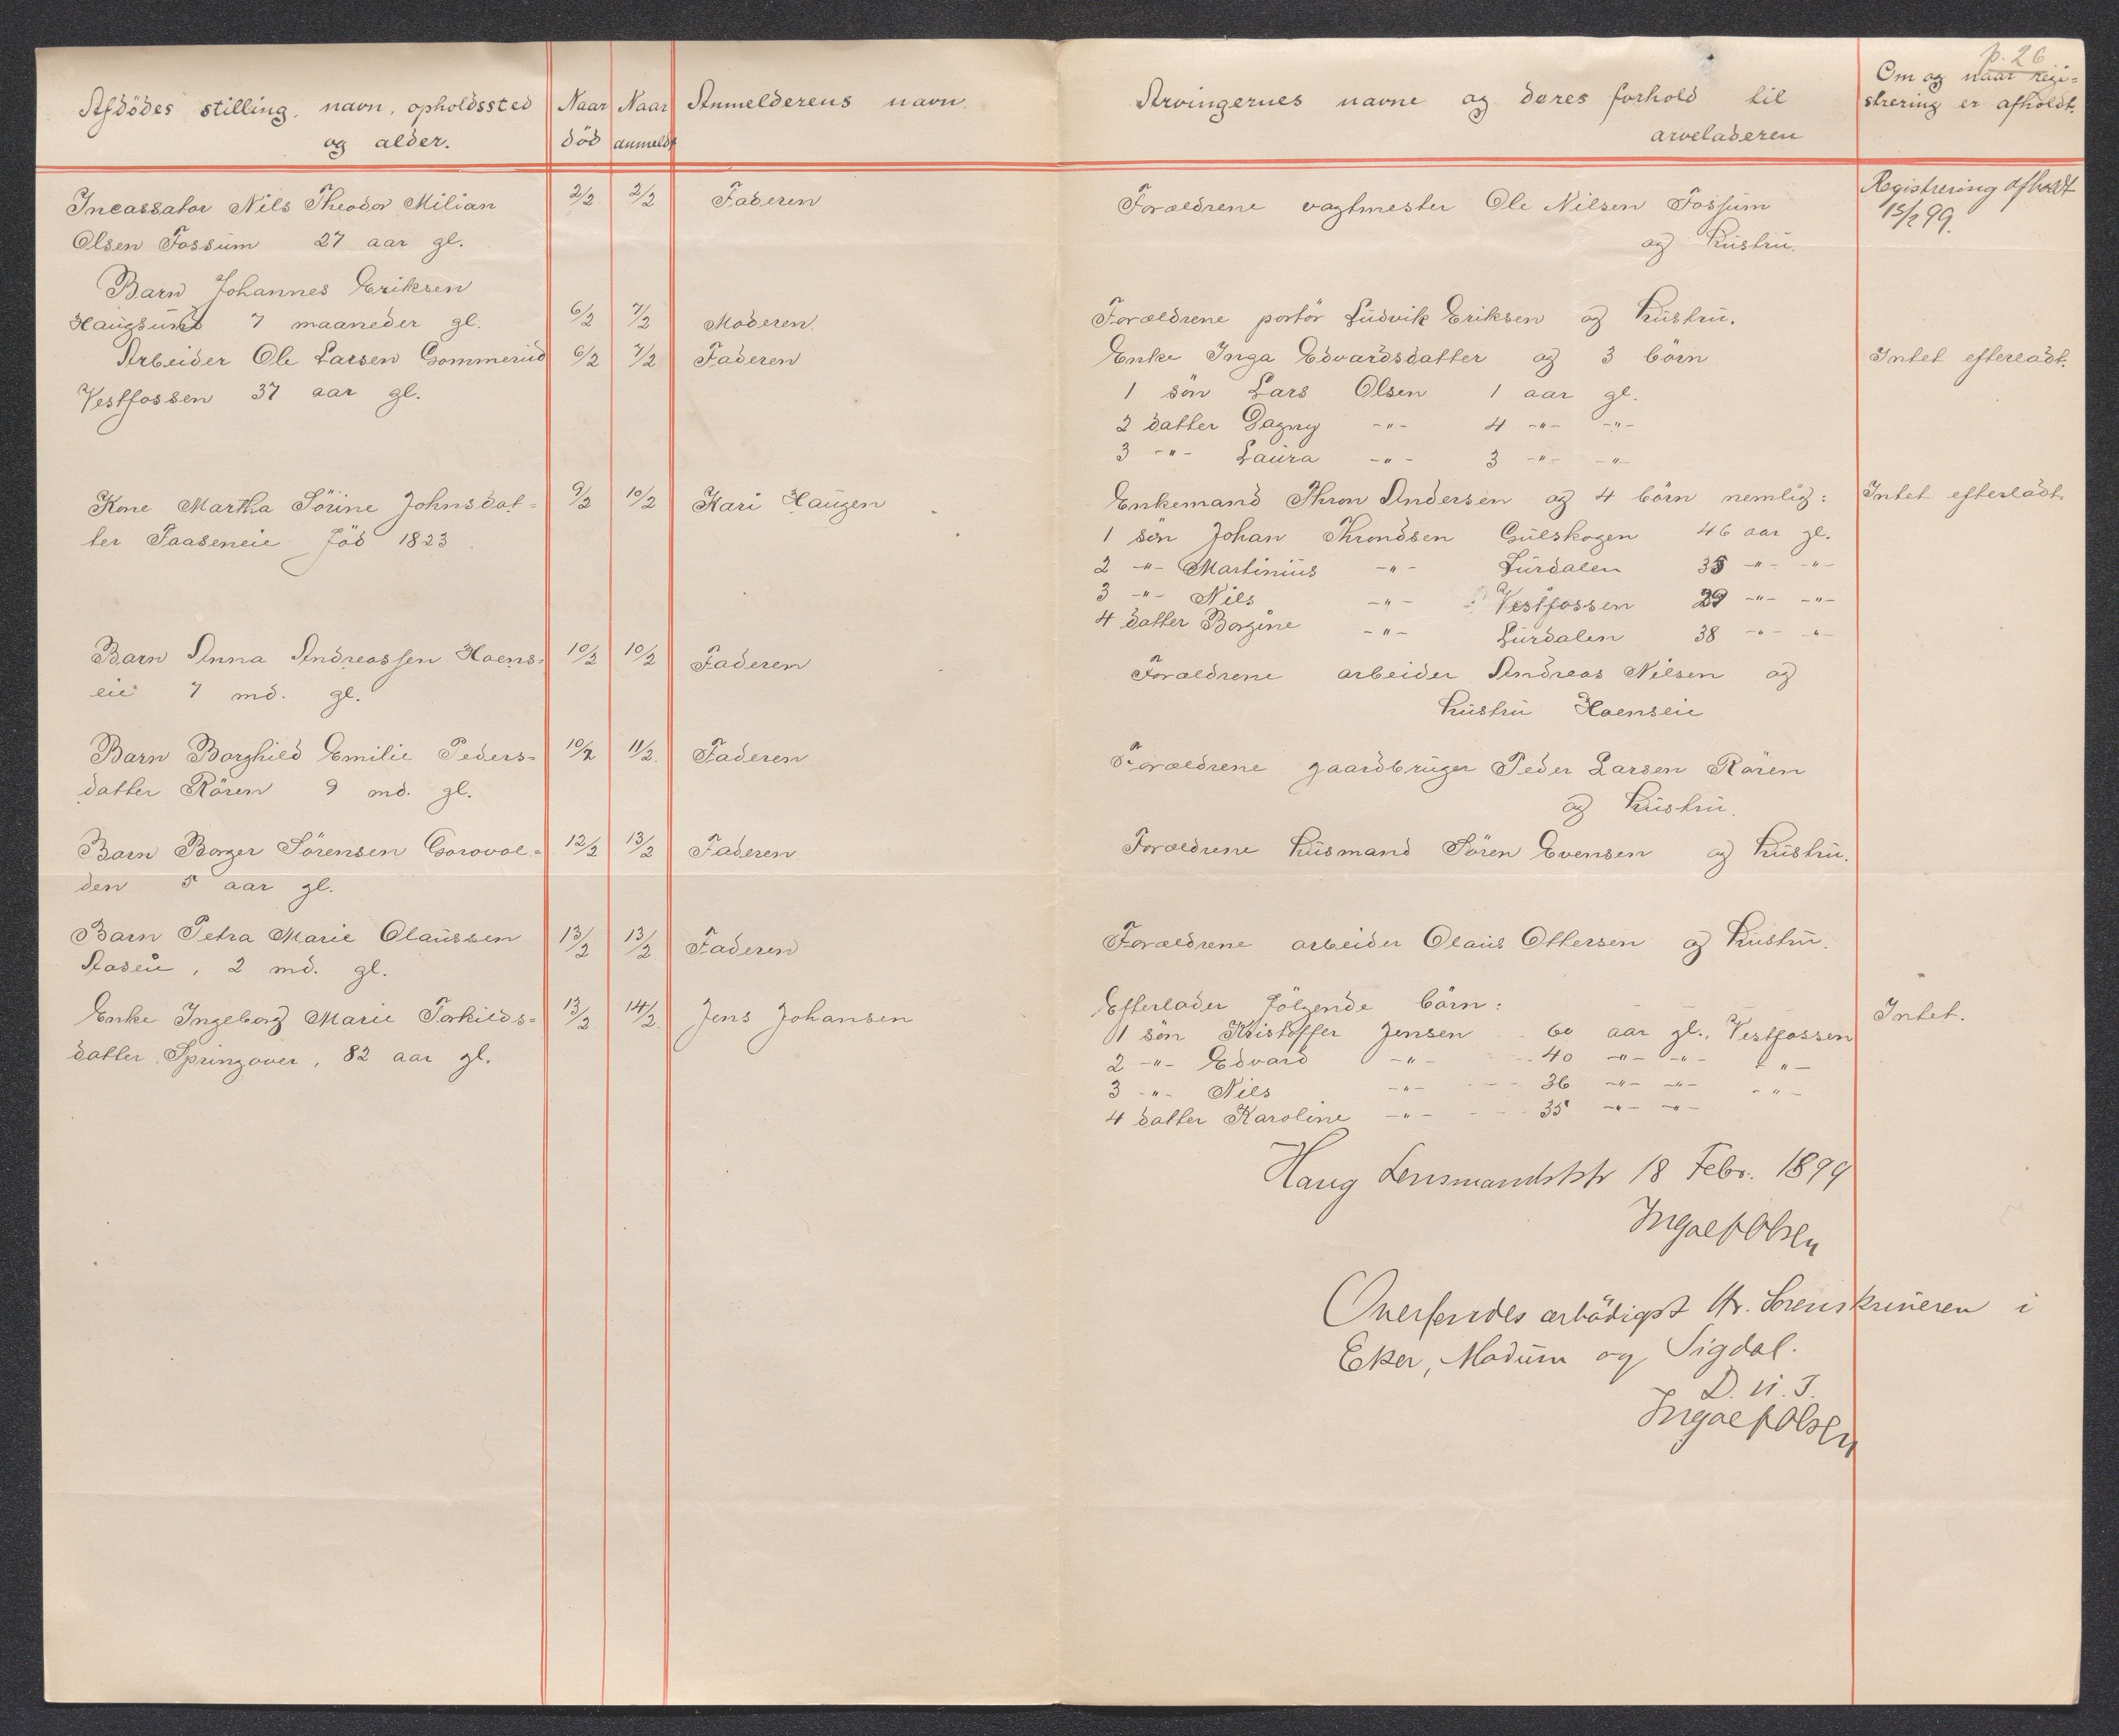 p. 26
Afdödes stilling, navn, opholdssted Naar Naar Anmelderens navn. Arvingernes navne og deres forhold til Om og naar regi=
og alder. död anmeldt arveladeren strering er afholdt.
Incassator Nils Theodor Milian 2/2 2/2 Faderen Forældrene vagtmester Ole Nilsen Fossum Registrering afholdt
Olsen Fossum 27 aar gl. og hustru. 15/2 99.
Barn Johannes Eriksen
Haugsund 7 maaneder gl. 6/2 7/2 Moderen. Forældrene portör Ludvik Eriksen og hustru.
Arbeider Ole Larsen Gommerud 6/2 7/2 Faderen Enke Inga Edvardsdatter og 3 börn Intet efterladt.
Vestfossen 37 aar gl. 1 sön Lars Olsen 1 aar gl.
2 datter Dagny -"- 4 -"- -"-
3 -"- Laura -"- 3 -"- -"-
Kone Martha Sörine Johnsdat= 9/2 10/2 Kari Haugen Enkemand Thron Andersen og 4 börn nemlig: Intet efterladt.
ter Faaseneie föd 1823 1 sön Johan Throndsen Gulskogen 46 aar gl.
2 -"- Martinius -"- Lurdalen 35 -"- -"-
3 -"- Nils -"- Vestfossen 29 -"- -"-
4 datter Borgine -"- Lurdalen 38 -"- -"-
Barn Anna Andreassen Hoens= 10/2 10/2 Faderen Forældrene arbeider Andreas Nilsen og
eie 7 md. gl. hustru Hoenseie
Barn Borghild Emilie Peders= 10/2 11/2. Faderen Forældrene gaardbruger Peder Larsen Rören
datter Rören 9 md. gl. og hustru.
Barn Borger Sörensen Gorovol= 12/2 13/2 Faderen Forældrene husmand Sören Evensen og hustru.
den 5 aar gl.
Barn Petra Marie Olaussen 13/2 13/2 Faderen Forældrene arbeider Olaus Ottersen og hustru.
Aasen, 2 md. gl.
Enke Ingeborg Marie Torkilds= 13/2 14/2. Jens Johansen Efterlader fölgende börn: Intet.
datter Springover, 82 aar gl. 1 sön Kristoffer Jensen 60 aar gl., Vestfossen
2 -"- Edvard -"- 40 -"- -"- -"-
3 -"- Nils -"- 36 -"- -"- -"-
4 datter Karoline -"- 35 -"- -"-
Haug Lensmandsktr 18 Febr. 1899
Ingolf Olsen
Oversendes ærbödigst Hr. Sorenskriveren i
Eker, Modum og Sigdal.
D. u. S.
Ingolf Olsen